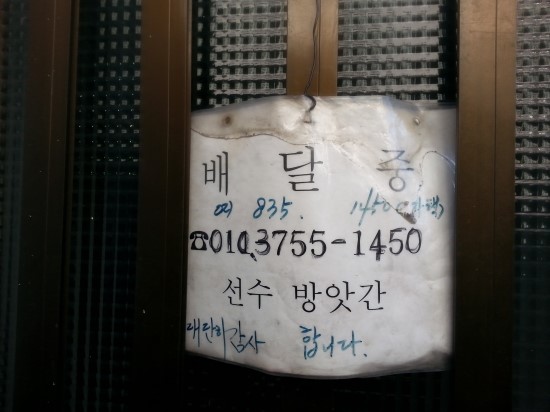 배 달 중
835. 1450
☎010.3755-1450
선수 방앗간
대단히감사 합니다.